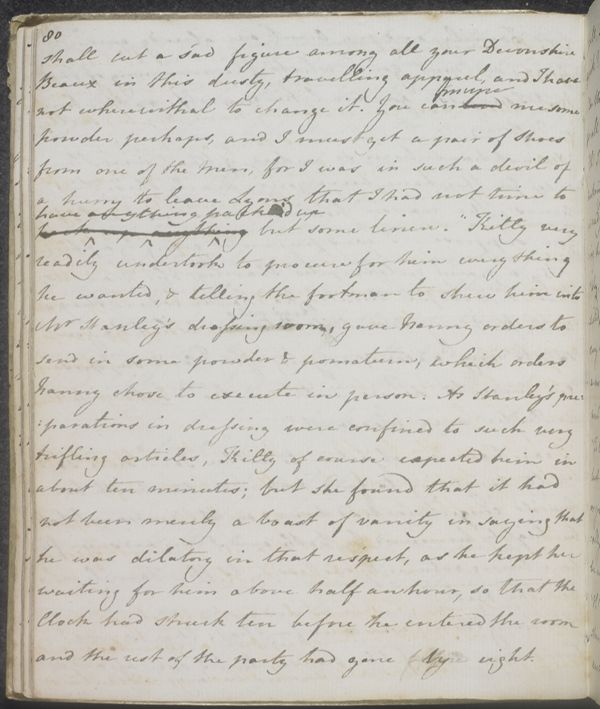 80
shall cut a sad figure among all your Devonshire
Beaux in this dusty, travelling apparel, and I have
not wherewithal to change it. You can procure me some
powder perhaps, and I must get a pair of Shoes
from one of the Men, for I was in such a devil of
a hurry to leave Lyons that I had not time to
have anything pack'd up
but some linen." Kitty very
readily undertook to procure for him every thing
he wanted, & telling the footman to shew him into
Mr Stanley's dressing room, gave Nanny orders to
send in some powder & pomatum, which orders
Nanny chose to execute in person. As Stanley's pre:
:parations in dressing were confined to such very
trifling articles, Kitty of course expected him in
about ten minutes; but she found that it had
not been merely a boast of vanity in saying that
he was dilatory in that respect, as he kept her
waiting for him above half an hour, so that the
Clock had struck ten before he entered the room
and the rest of the party had gone by eight.